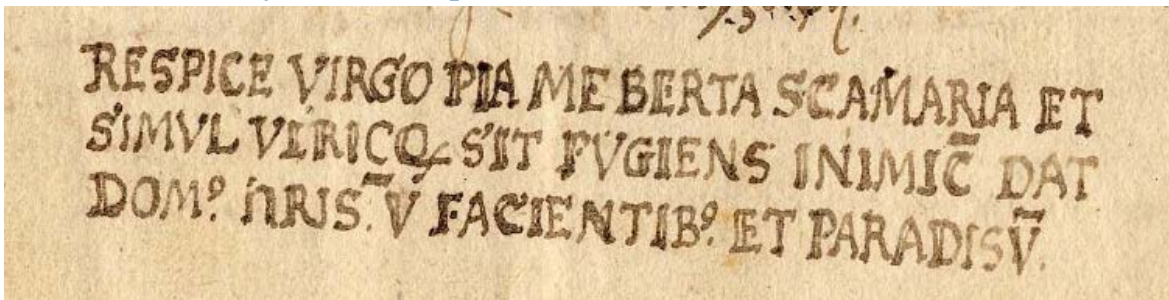 RESPICE VIRGO PIA ME BERTA SCAMARIA ET
SIMVL VLRICQ SIT FVGIENS INIMIC̅ DAT
DOMꝰ NR̅IS. V̅ FACIENTIBꝰ. ET PARADISV̅.